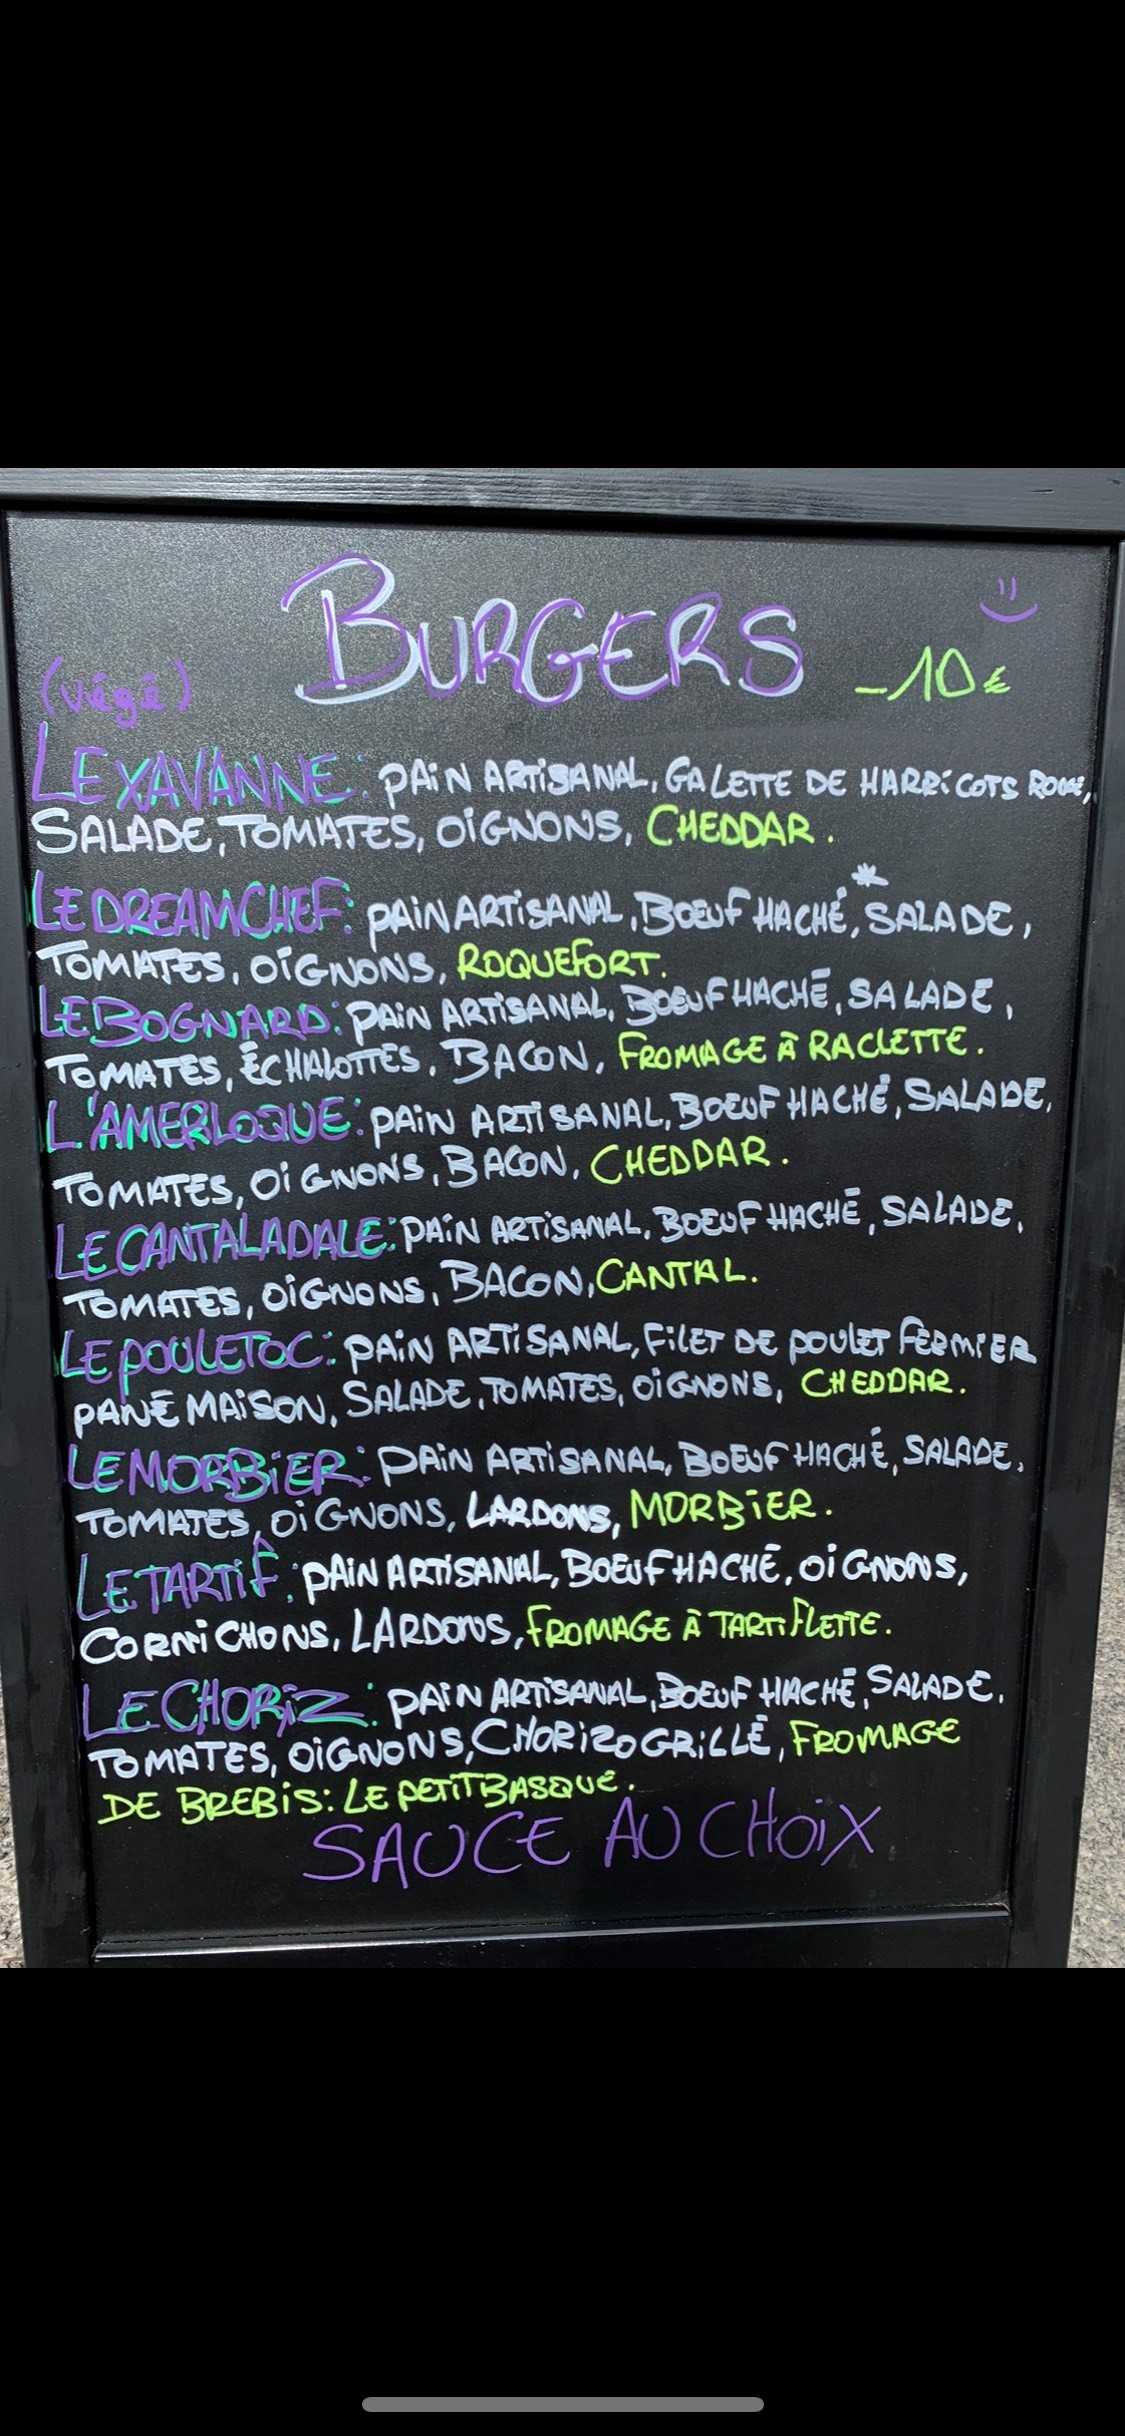 BURGERS -10€
(végé)
LEXAVANNE: PAIN ARTISANAL, GALETTE DE HARRICOTS ROUGE,
SALADE, TOMATES, OIGNONS, CHEDDAR.
LEDREAMCHEF: PAIN ARTISANAL, BOEUF HACHÉ*, SALADE,
TOMATES, OIGNONS, ROQUEFORT.
LEBOGNARD: PAIN ARTISANAL, BOEUF HACHÉ, SALADE,
TOMATES, ÉCHALOTTES, BACON, FROMAGE À RACLETTE.
L'AMERLOQUE: PAIN ARTISANAL, BOEUF HACHÉ, SALADE,
TOMATES, OIGNONS, BACON, CHEDDAR.
LECANTALADALE: PAIN ARTISANAL, BOEUF HACHÉ, SALADE,
TOMATES, OIGNONS, BACON, CANTAL.
LEPOULETOC: PAIN ARTISANAL, FILET DE POULET FERMIER
PANÉ MAISON, SALADE, TOMATES, OIGNONS, CHEDDAR.
LEMORBIER: PAIN ARTISANAL, BOEUF HACHÉ, SALADE,
TOMATES, OIGNONS, LARDONS, MORBIER.
LETARTIF: PAIN ARTISANAL, BOEUF HACHÉ, OIGNONS,
CORNICHONS, LARDONS, FROMAGE À TARTIFLETTE.
LECHORIZ: PAIN ARTISANAL, BOEUF HACHÉ, SALADE,
TOMATES, OIGNONS, CHORIZO GRILLÉ, FROMAGE
DE BREBIS: LE PETIT BASQUE.
SAUCE AU CHOIX